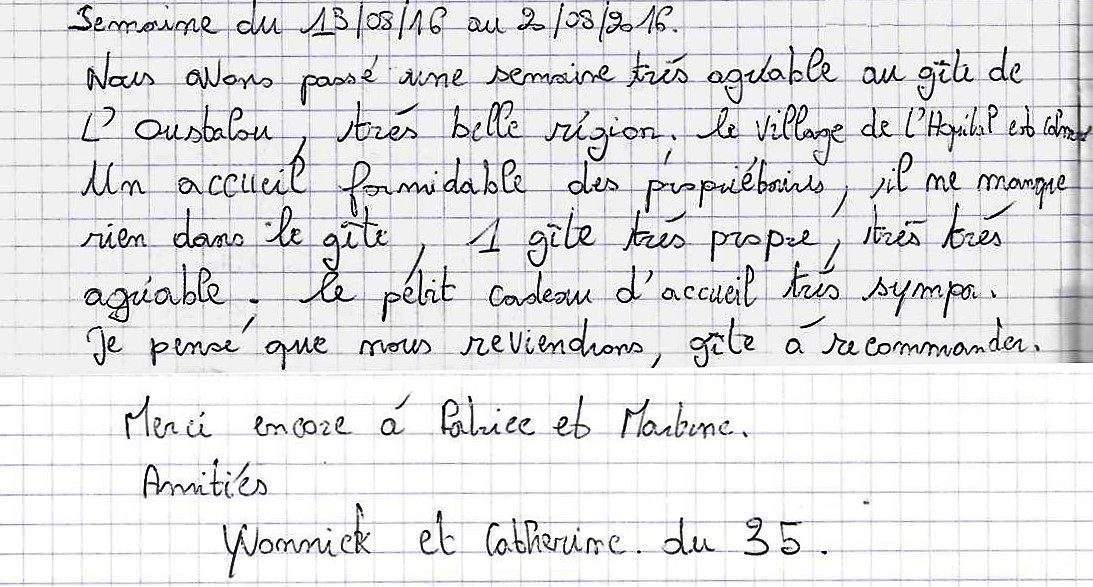 Semaine du 13/08/16 au 20/08/2016.
Nous avons passé une semaine très agréable au gîte de
L'Oustalou, très belle région. le village de L'Hopital est calme
Un accueil formidable des propriétaires, il ne manque
rien dans le gîte, 1 gîte très propre, très très
agréable. le pétit cadeau d'accueil très sympa.
Je pense que nous reviendrons, gîte à recommander.
Merci encore à Patrice et Martine.
Amitiés
Yvonnick et Catherine. du 35.